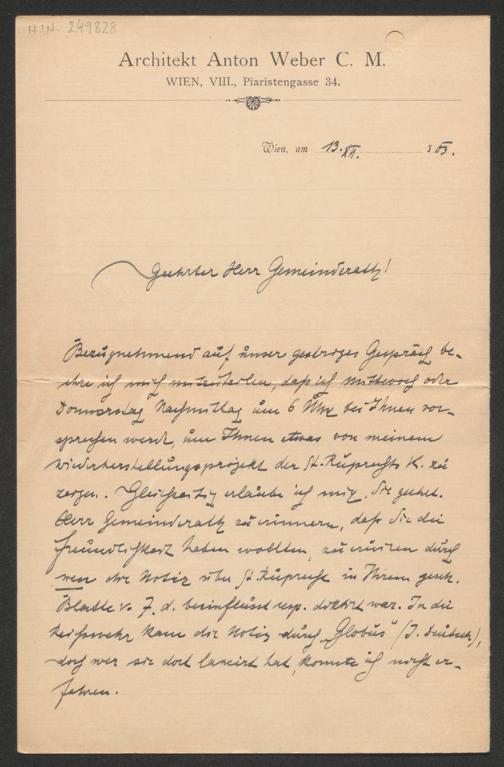 H.I.N. 249828
Architekt Anton Weber C. M.
WIEN, VIII., Piaristengasse 34.
Wien, am 13. XII. 303.
Geehrter Herr Gemeinderath!
Bezugnehmend auf unser gestriges Gespräch be-
ehre ich mich mitzutheilen, daß ich Mittwoch oder
Donnerstag Nachmittag um 6 Uhr bei Ihnen vor-
sprechen werde, um Ihnen etwas von meinem
Wiederherstellungsprojekt der St. Ruprechts K. zu
zeigen. Gleichzeitig erlaube ich mir, Sie geehrt.
Herr Gemeinderath zu erinnern, daß Sie die
Freundlichkeit haben wollten, zu eruiren durch
wen die Notiz über St. Ruprecht in Ihrem gesch.
Blatte v. 7. d. beeinflusst resp. diktirt war. In die
Reichswehr kam die Notiz durch „Globus" (J. Deutsch),
doch wer sie dort lancirt hat, konnte ich nicht er-
fahren.